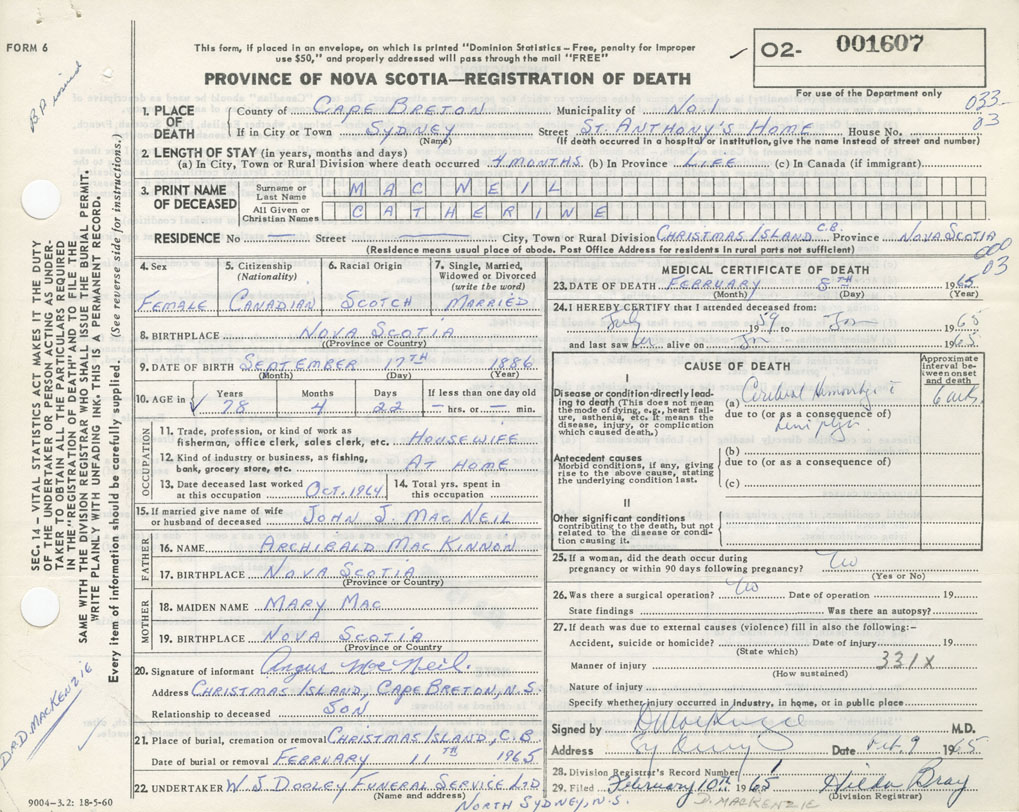 FORM 6
This form, if placed in an envelope, on which is printed "Dominion Statistics – Free, penalty for improper
use $50," and properly addressed will pass through the mail "FREE"
PROVINCE OF NOVA SCOTIA—REGISTRATION OF DEATH
02- 001607
For use of the Department only
033
03
1. PLACE OF DEATH
County of CAPE BRETON Municipality of No. 1
If in City or Town SYDNEY Street ST. ANTHONY'S HOME House No.
(Name) (If death occurred in a hospital or institution, give the name instead of street and number)
2. LENGTH OF STAY (in years, months and days)
(a) In City, Town or Rural Division where death occurred 4 MONTHS (b) In Province LIFE (c) In Canada (if immigrant)
3. PRINT NAME OF DECEASED
Surname or Last Name MAC NEIL
All Given or Christian Names CATHERINE
RESIDENCE No — Street — City, Town or Rural Division CHRISTMAS ISLAND C.B. Province NOVA SCOTIA
(Residence means usual place of abode. Post Office Address for residents in rural parts not sufficient)
000
03
4. Sex FEMALE
5. Citizenship (Nationality) CANADIAN
6. Racial Origin SCOTCH
7. Single, Married, Widowed or Divorced (write the word) MARRIED
8. BIRTHPLACE NOVA SCOTIA
(Province or Country)
9. DATE OF BIRTH SEPTEMBER 17TH 1886
(Month) (Day) (Year)
10. AGE in Years 78 Months 4 Days 22 If less than one day old — hrs. or — min.
OCCUPATION
11. Trade, profession, or kind of work as
fisherman, office clerk, sales clerk, etc. HOUSEWIFE
12. Kind of industry or business, as fishing,
bank, grocery store, etc. AT HOME
13. Date deceased last worked
at this occupation OCT. 1964
14. Total yrs. spent in
this occupation
15. If married give name of wife
or husband of deceased JOHN J. MAC NEIL
FATHER
16. NAME ARCHIBALD MAC KINNON
17. BIRTHPLACE NOVA SCOTIA
(Province or Country)
MOTHER
18. MAIDEN NAME MARY MAC
19. BIRTHPLACE NOVA SCOTIA
(Province or Country)
20. Signature of informant Angus Mac Neil.
Address CHRISTMAS ISLAND, CAPE BRETON, N.S.
Relationship to deceased SON
21. Place of burial, cremation or removal CHRISTMAS ISLAND, C.B.
Date of burial or removal FEBRUARY 11TH 1965
22. UNDERTAKER W. J. DOOLEY FUNERAL SERVICE LTD
(Name and address) NORTH SYDNEY, N.S.
MEDICAL CERTIFICATE OF DEATH
23. DATE OF DEATH FEBRUARY 8TH 1965
(Month) (Day) (Year)
24. I HEREBY CERTIFY that I attended deceased from:
July 1959 to Jan 1965
and last saw her alive on Jan 1965
CAUSE OF DEATH
Approximate interval between onset and death
I
Disease or condition directly leading to death (This does not mean the mode of dying, e.g., heart failure, asthenia, etc. It means the disease, injury, or complication which caused death.)
(a) Cerebral
due to (or as a consequence of)
6
Antecedent causes
Morbid conditions, if any, giving rise to the above cause, stating the underlying condition last.
(b)
due to (or as a consequence of)
(c)
II
Other significant conditions
contributing to the death, but not related to the disease or condition causing it.
25. If a woman, did the death occur during
pregnancy or within 90 days following pregnancy? No
(Yes or No)
26. Was there a surgical operation? No Date of operation 19
State findings Was there an autopsy?
27. If death was due to external causes (violence) fill in also the following:-
Accident, suicide or homicide? Date of injury 19
(State which)
Manner of injury 331X
(How sustained)
Nature of injury
Specify whether injury occurred in Industry, in home, or in public place
Signed by D MacKenzie M.D.
Address Date Feb. 9 1965
28. Division Registrar's Record Number 1
29. Filed February 10th 1965 Hilda Bray
(Division Registrar)
D. MACKENZIE
SEC. 14 – VITAL STATISTICS ACT MAKES IT THE DUTY
OF THE UNDERTAKER OR PERSON ACTING AS UNDER-
TAKER TO OBTAIN ALL THE PARTICULARS REQUIRED
IN THE "REGISTRATION OF DEATH" AND TO FILE THE
SAME WITH THE DIVISION REGISTRAR WHO SHALL ISSUE THE BURIAL PERMIT.
WRITE PLAINLY WITH UNFADING INK. THIS IS A PERMANENT RECORD.
Every item of information should be carefully supplied. (See reverse side for instructions.)
B.P. issued
DR. D. MACKENZIE
9004-3.2: 18-5-60